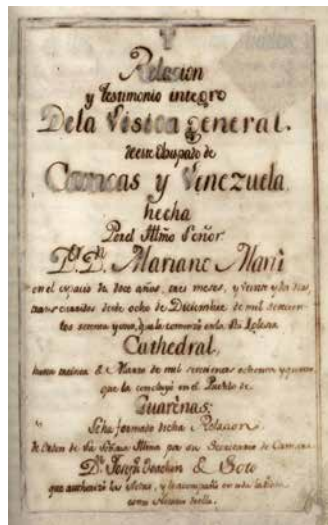 Relacion
y testimonio integro
Dela Visita general.
deeste Obispado de
Caracas y Venezuela
hecha
Por el Illmo Señor
D.r D.n Mariano Marti
en el espacio de doce años, tres meses, y veinte y dos dias,
transcurridos desde ocho de Diciembre de mil setecien-
tos setenta y uno, q.e la comenzó en la Sta Iglesia
Cathedral,
hasta treinta de Marzo de mil setecientos ochenta y quatro
que la concluyó en el Pueblo de
Guarenas.
Se ha formado dicha Relacion
de Orden de Su Señoria Illma por su Secretario de Camara
D.n Joseph Joachin de Soto
que authorizó las Actas, y le acompañó en toda la Visita
como Notario de ella.